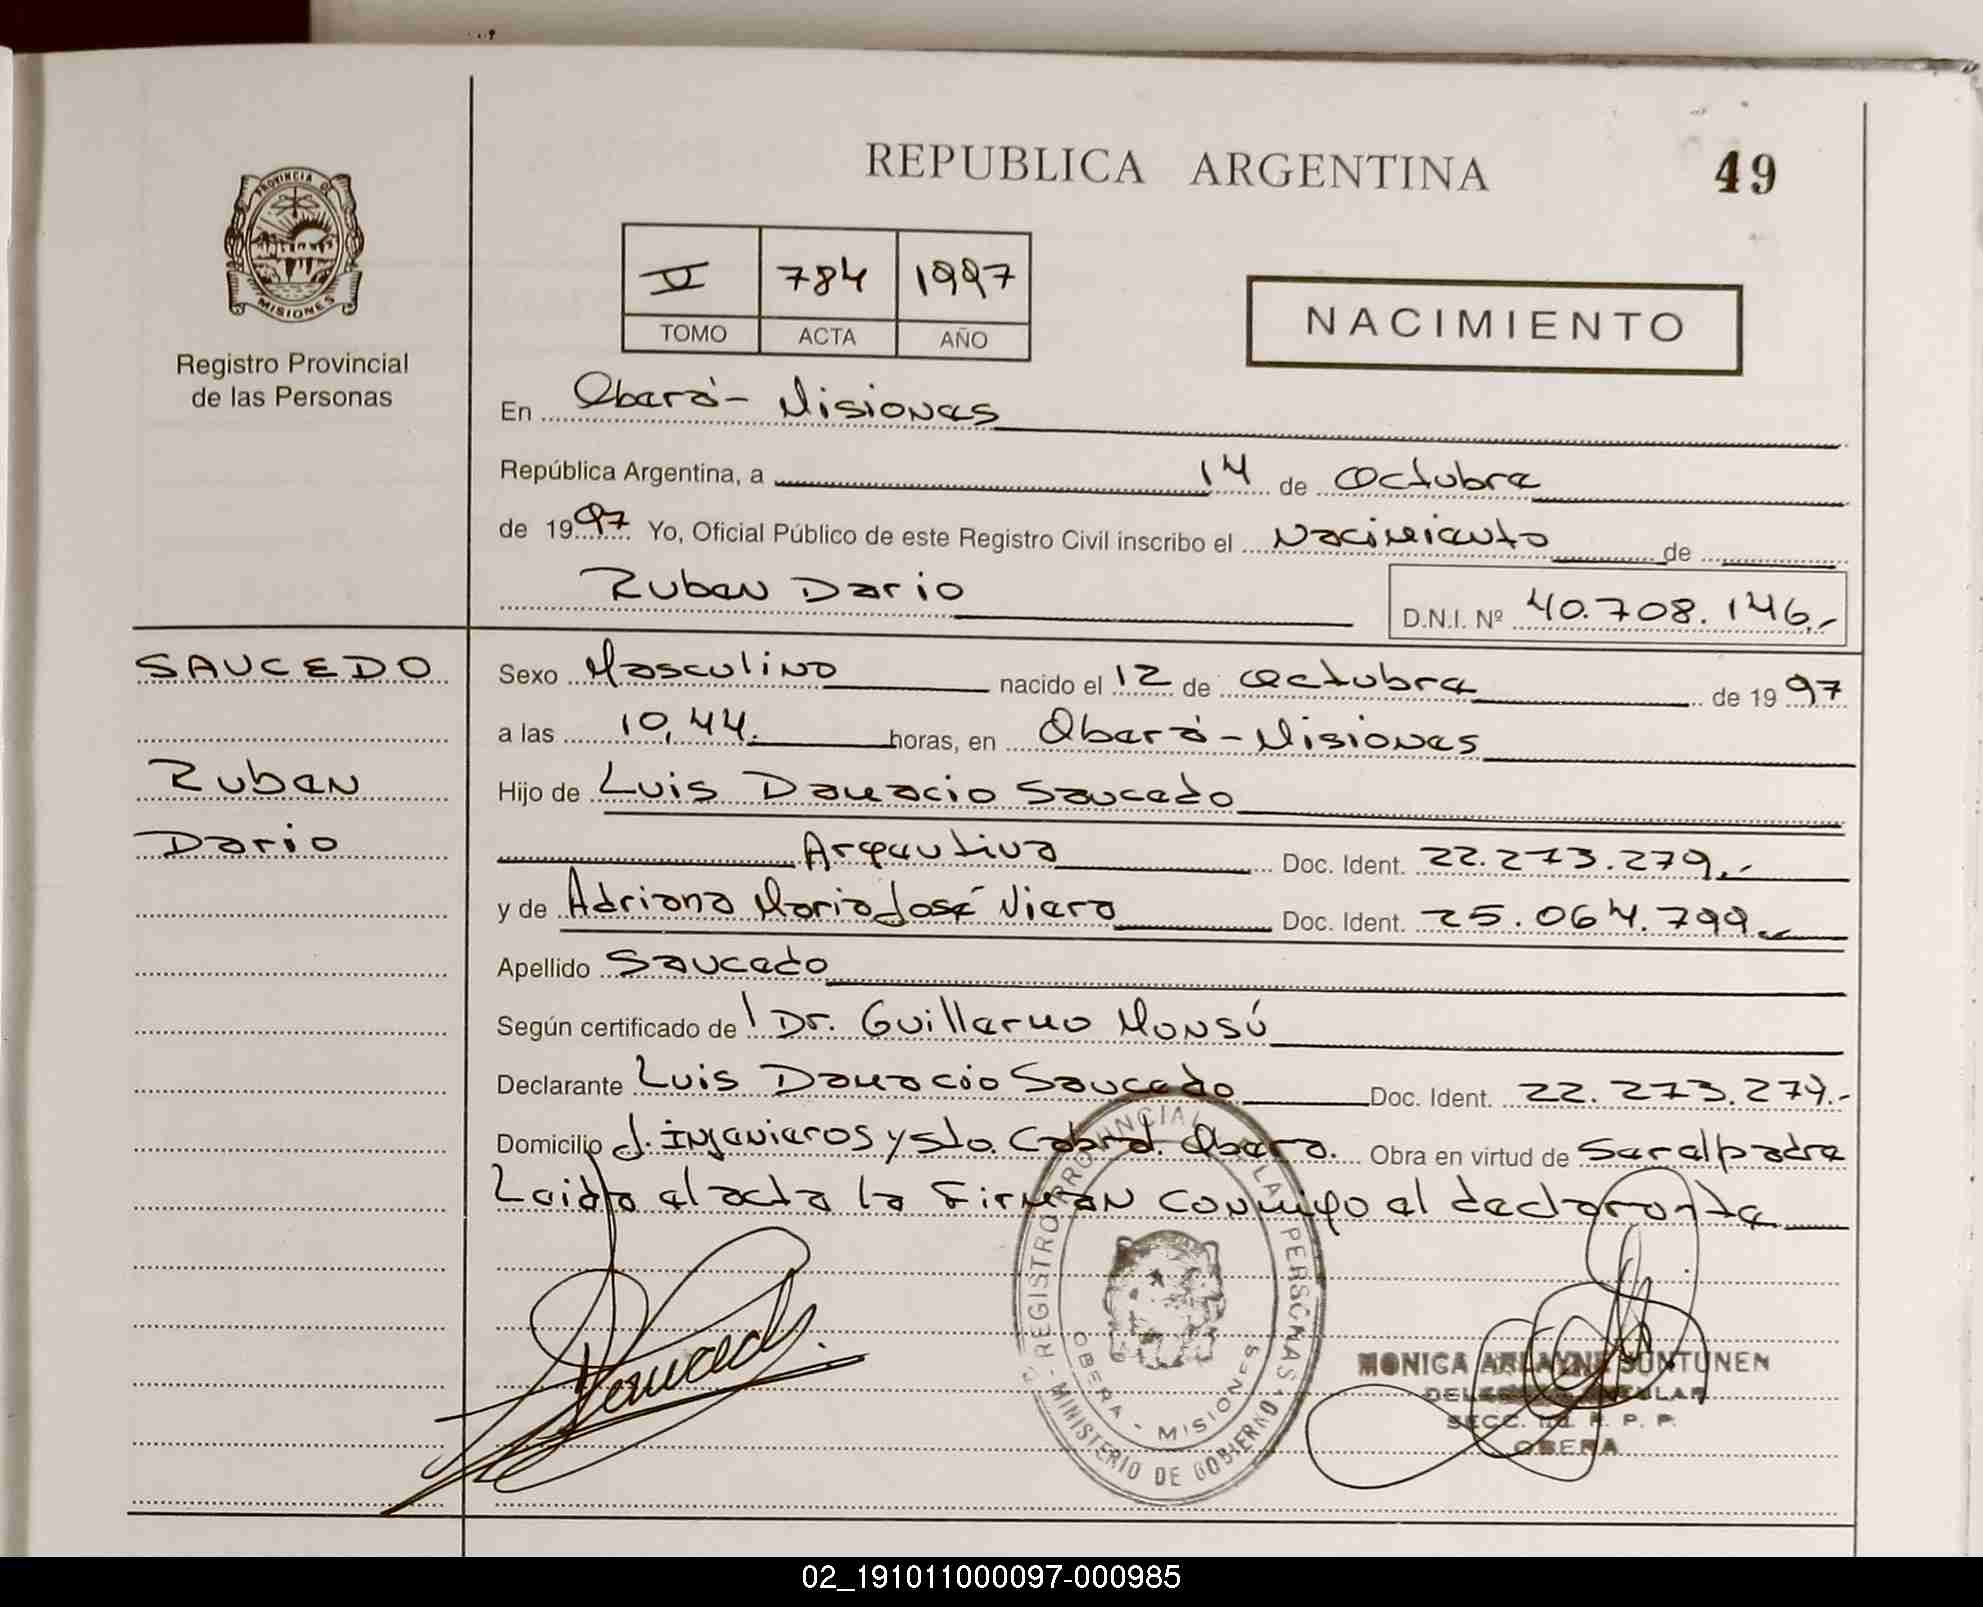 REPUBLICA ARGENTINA
49
PROVINCIA DE
MISIONES
Registro Provincial
de las Personas
V 784 1997
TOMO ACTA AÑO
NACIMIENTO
En Oberá - Misiones
República Argentina, a 14 de octubre
de 1997 Yo, Oficial Público de este Registro Civil inscribo el Nacimiento de
Ruben Dario
D.N.I. Nº 40.708.146.-
SAUCEDO
Ruben
Dario
Sexo Masculino nacido el 12 de octubre de 1997
a las 10,44. horas, en Oberá - Misiones
Hijo de Luis Damacio Saucedo
Argentina Doc. Ident. 22.273.279.-
y de Adriana Maria José Viera Doc. Ident. 25.064.799.-
Apellido Saucedo
Según certificado de Dr. Guillermo Monsú
Declarante Luis Damacio Saucedo Doc. Ident. 22.273.279.-
Domicilio J. Ingenieros y Sto. Cabral. Obera. Obra en virtud de Ser el padre
Leida el acta la Firman conmigo el declarante
Saucedo
REGISTRO PROVINCIAL DE LAS PERSONAS
OBERA - MISIONES
MINISTERIO DE GOBIERNO
MONICA ARLAYNE SUNTUNEN
SECC. R. P. P.
OBERA
02_191011000097-000985